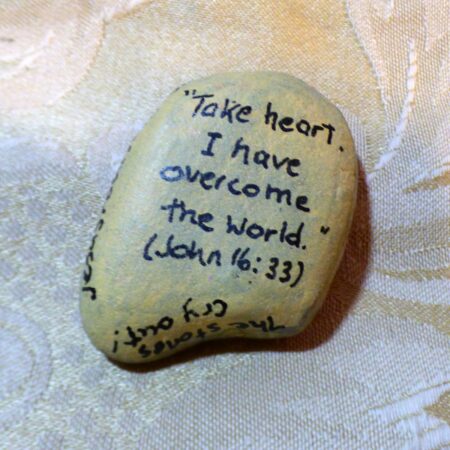 "Take heart.
I have
overcome
the World."
(John 16:33)
The stones
cry out!